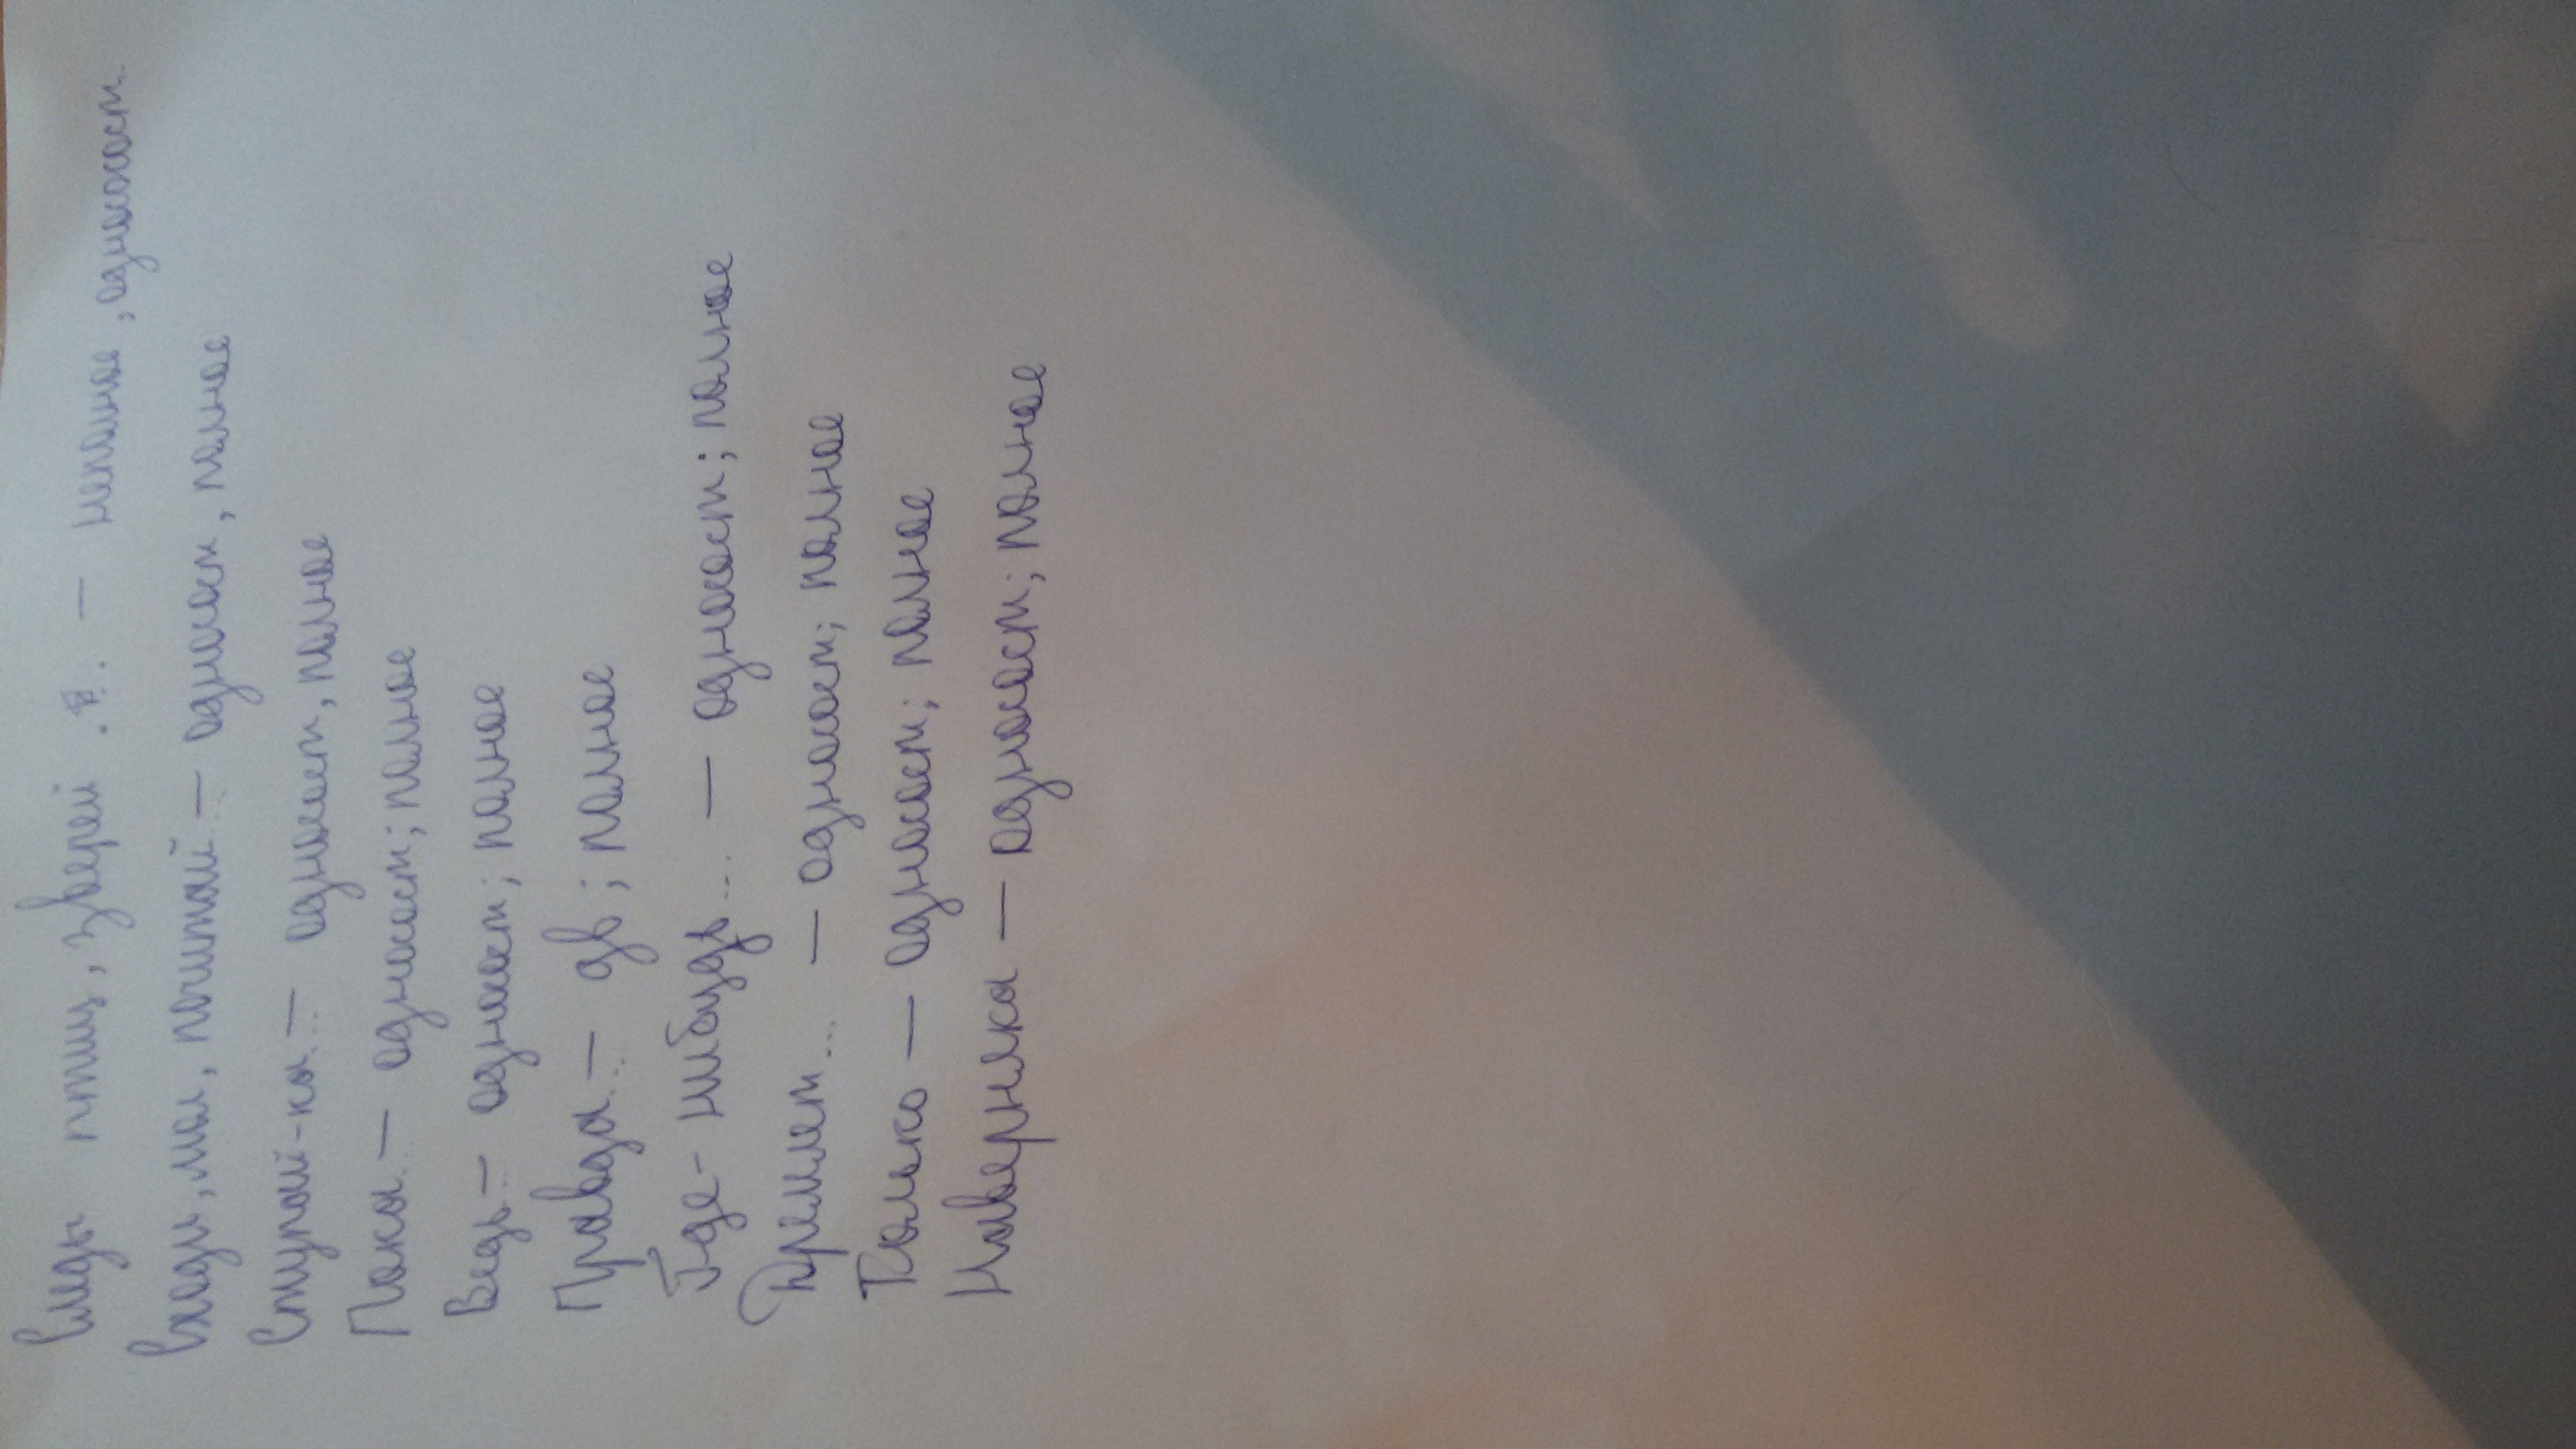 Следы птиц, зверей ... — неполное, односост.
Входи, мол, почитай — односост, полное
Ступай-ка... — односост, полное
Пока... — односост; полное
Ведь... — односост; полное
Правда... — дв; полное
Где-нибудь... — односост; полное
Дремлет... — односост; полное
Только — односост; полное
Наверняка — односост; полное